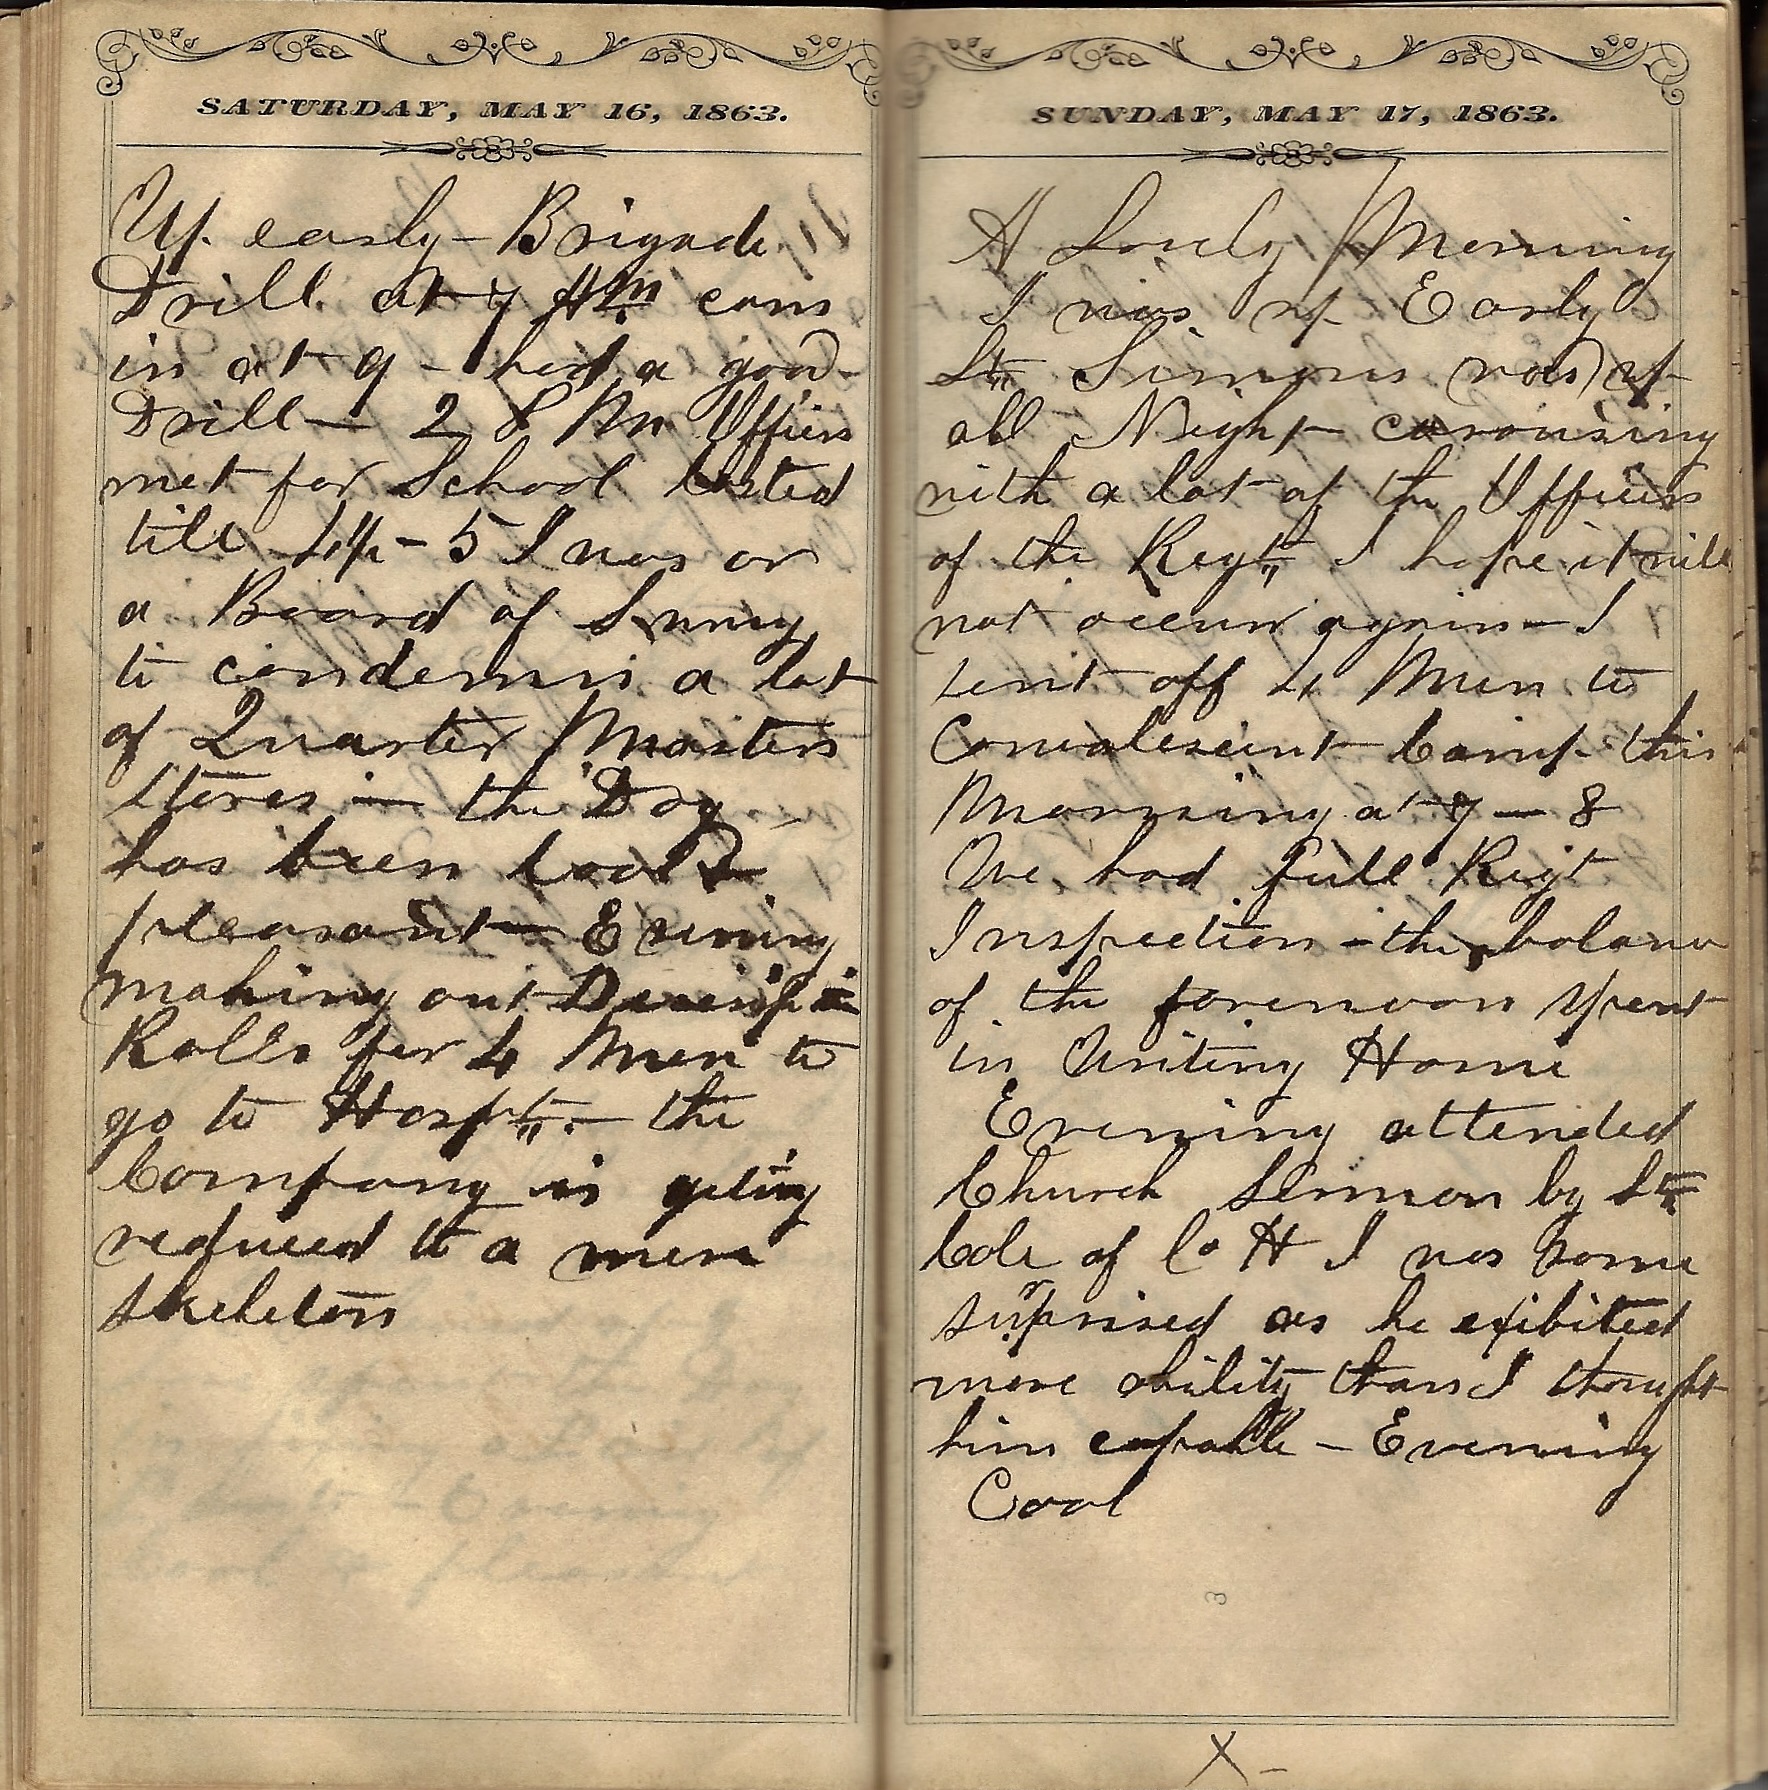 SATURDAY, MAY 16, 1863.
Up early - Brigade
Drill at 7 AM cam
in at 9 - had a good -
Drill - 2 P M Officers
met for School lasted
till 4 - 5 I was on
a Board of Survey
to condemn a lot
of Quarter Masters
stores - the Day
has been cool &
pleasant - Evening
making out Descrip
Rolls for 4 Men to
go to Hospt. - the
Company is geting
reduced to a mere
skeleton
SUNDAY, MAY 17, 1863.
A Lovely Morning
I was up Early
Lt Simons was up
all Night carousing
with a lot of the Officers
of the Regt I hope it will
not occur again - I
sent off 4 Men to
Convalescent Camp this
Morning at 7 - 8
We had full Regt
Inspection - the balance
of the forenoon spent
in Writing Home
Evening attended
Church Sermon by Lt
Cole of Co H I was some
surprised as he exibited
more ability than I thought
him capable - Evening
Cool
3
X -